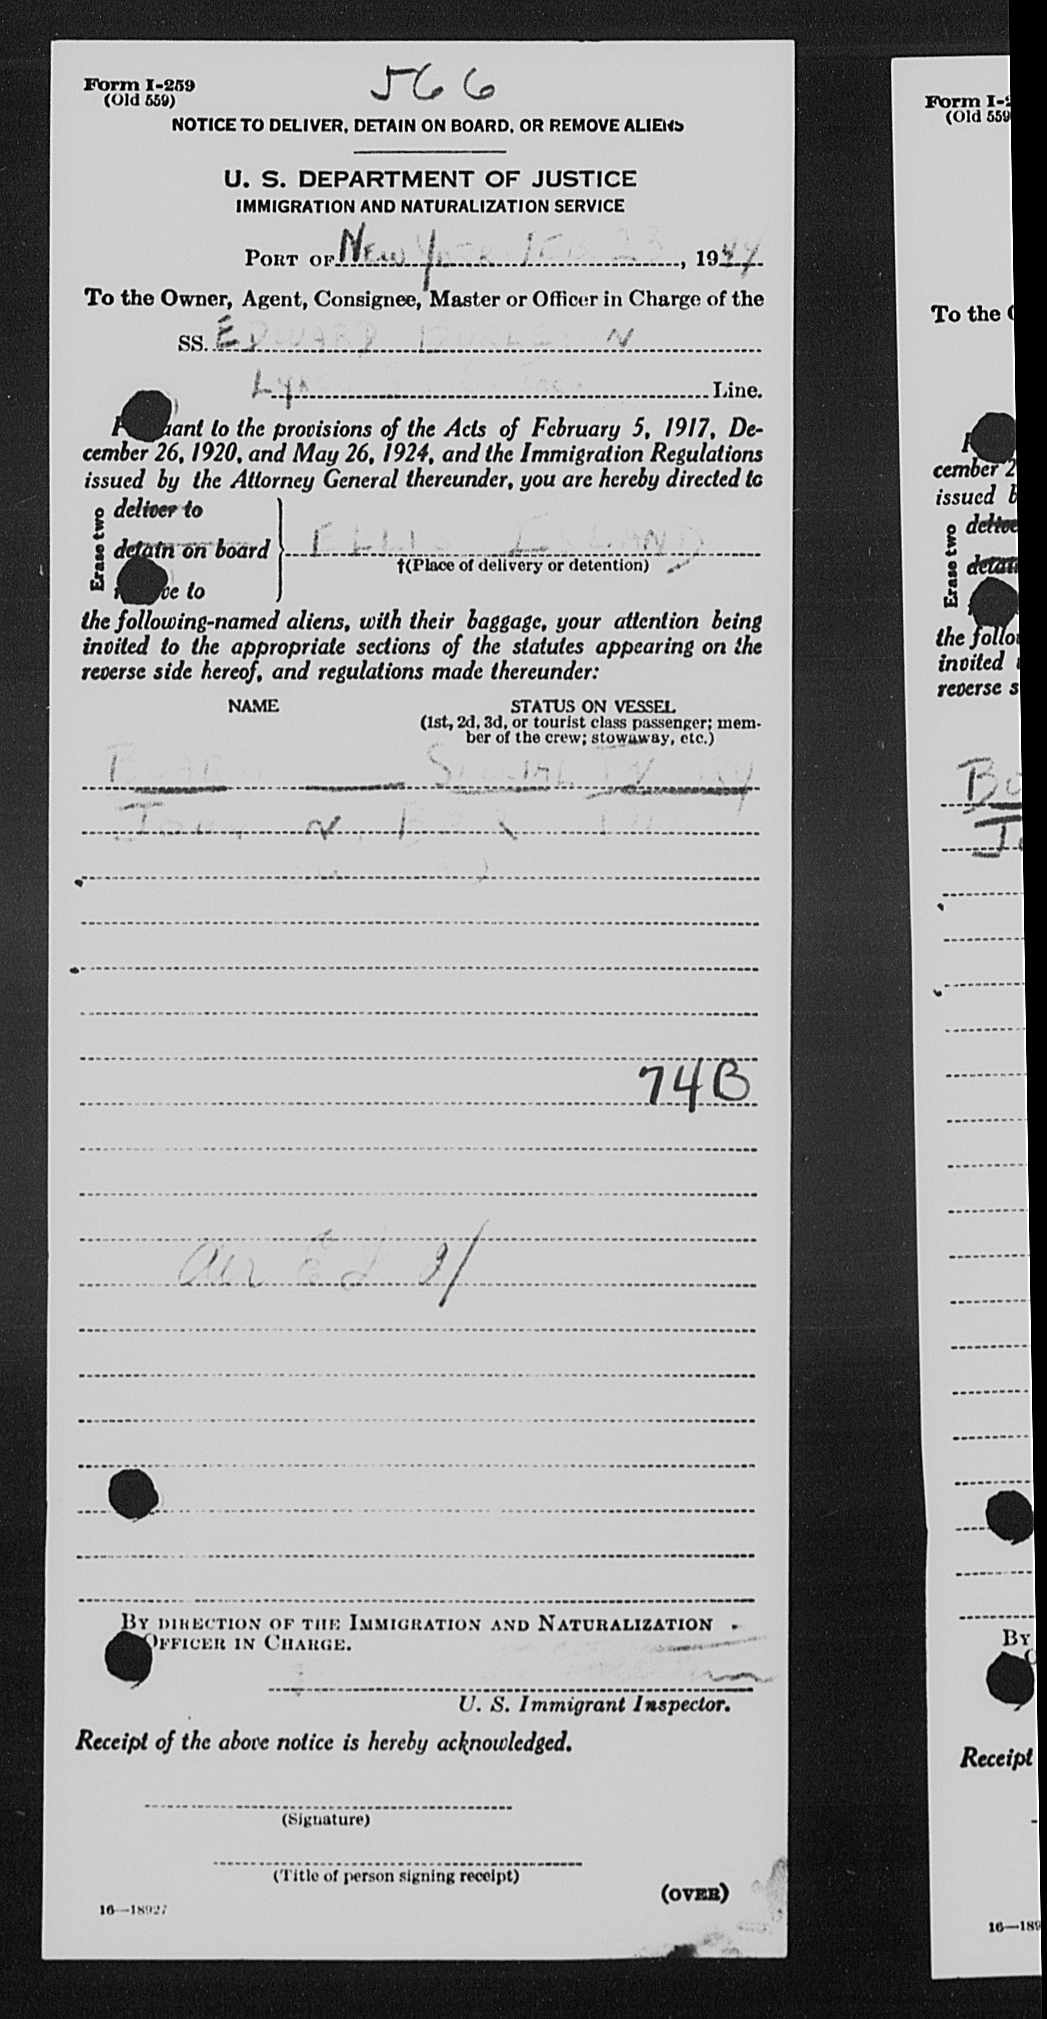 Form I-259
(Old 559)
566
NOTICE TO DELIVER, DETAIN ON BOARD, OR REMOVE ALIENS
U. S. DEPARTMENT OF JUSTICE
IMMIGRATION AND NATURALIZATION SERVICE
PORT OF NEW YORK FEB 23, 1944
To the Owner, Agent, Consignee, Master or Officer in Charge of the
SS. EDWARD
Line.
to the provisions of the Acts of February 5, 1917, De-
cember 26, 1920, and May 26, 1924, and the Immigration Regulations
issued by the Attorney General thereunder, you are hereby directed to
Erase two
deliver to
detain on board
to
ELLIS ISLAND
†(Place of delivery or detention)
the following-named aliens, with their baggage, your attention being
invited to the appropriate sections of the statutes appearing on the
reverse side hereof, and regulations made thereunder:
NAME
STATUS ON VESSEL
(1st, 2d, 3d, or tourist class passenger; mem-
ber of the crew; stowaway, etc.)
74B
BY DIRECTION OF THE IMMIGRATION AND NATURALIZATION
OFFICER IN CHARGE.
U. S. Immigrant Inspector.
Receipt of the above notice is hereby acknowledged.
(Signature)
(Title of person signing receipt)
(OVER)
16—18927
Form I-2
(Old 559
To the
cember 2
issued
Erase two
the follo
invited
reverse s
Bo
Jo
By
Receipt
16—189